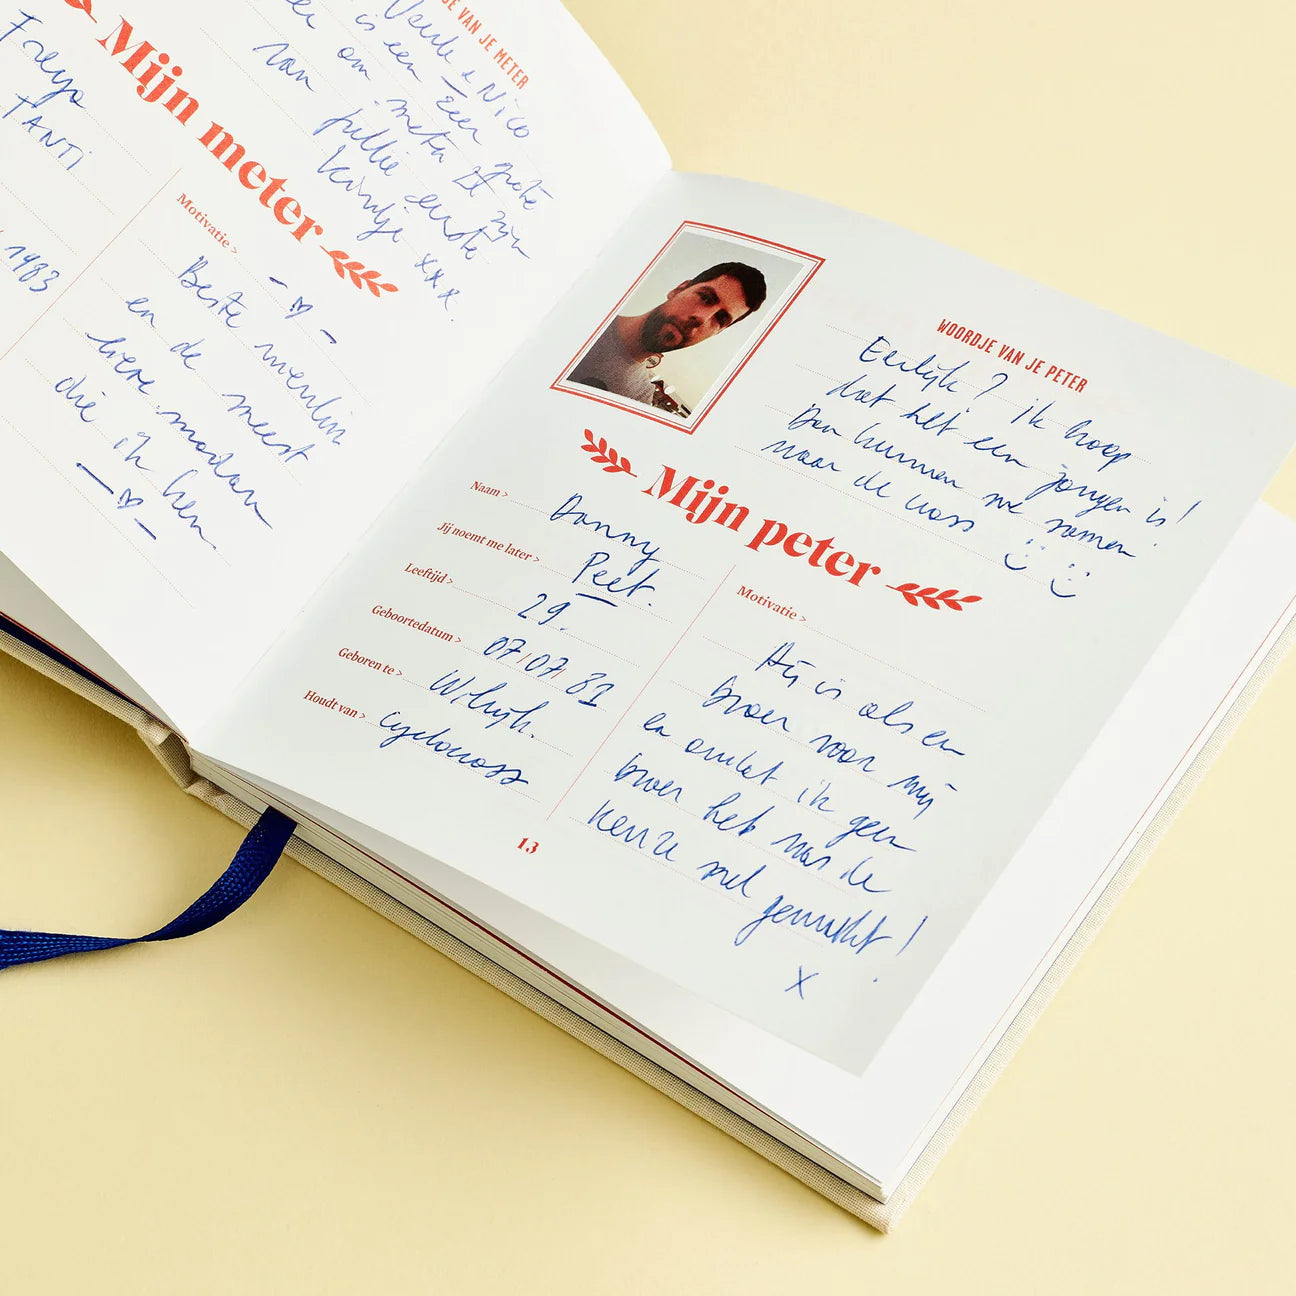 JE VAN JE METER
Veerle & Nico
is een zeer grote
eer om meter te zijn
van jullie eerste
kindje xxx.
Mijn meter
Freya
TANTI
1983
Motivatie >
Beste vriendin
en de meest
lieve madam
die ik ken
WOORDJE VAN JE PETER
Eerlijk? ik hoop
dat het een jongen is!
Dan kunnen we samen
naar de cross
Mijn peter
Naam > Danny
Jij noemt me later > Peet.
Leeftijd > 29.
Geboortedatum > 07/07/81
Geboren te > Wilrijk.
Houdt van > cyclocross
Motivatie >
Hij is als een
broer voor mij
en omdat ik geen
broer heb was de
keuze snel gemaakt!
x
13